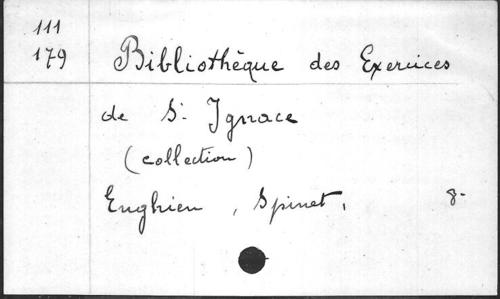 111
179 Bibliothèque des Exercices
de St. Ignace
(collection)
Enghien, Spinet, 8-